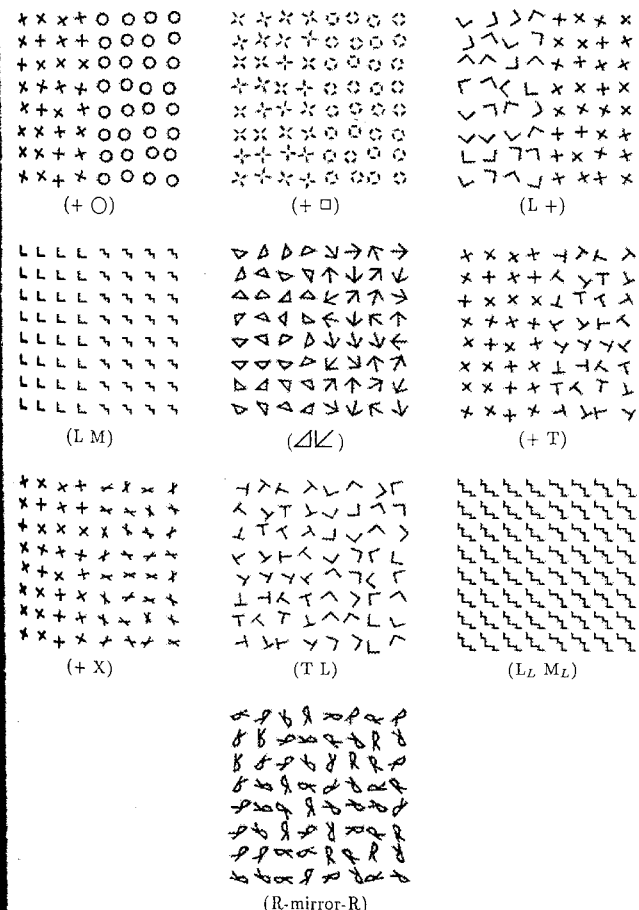 (+ ○)
(+ □)
(L +)
(L M)
(+ T)
(+ X)
(T L)
(L_L M_L)
(R-mirror-R)